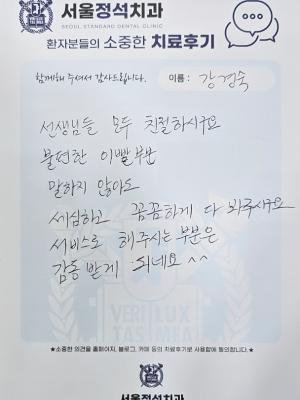 서울정석치과
SEOUL STANDARD DENTAL CLINIC
환자분들의 소중한 치료후기
함께해 주셔서 감사드립니다.
이름 : 강경숙
선생님들 모두 친절하시구요
불편한 이빨부분
말하지 않아도
세심하고 꼼꼼하게 다 봐주시구요
서비스로 해주시는 부분은
감동 받게 되네요 ^^
VERI LUX
TAS MEA
★소중한 의견을 홈페이지, 블로그, 카페 등의 치료후기로 사용함에 동의합니다.★
서울정석치과